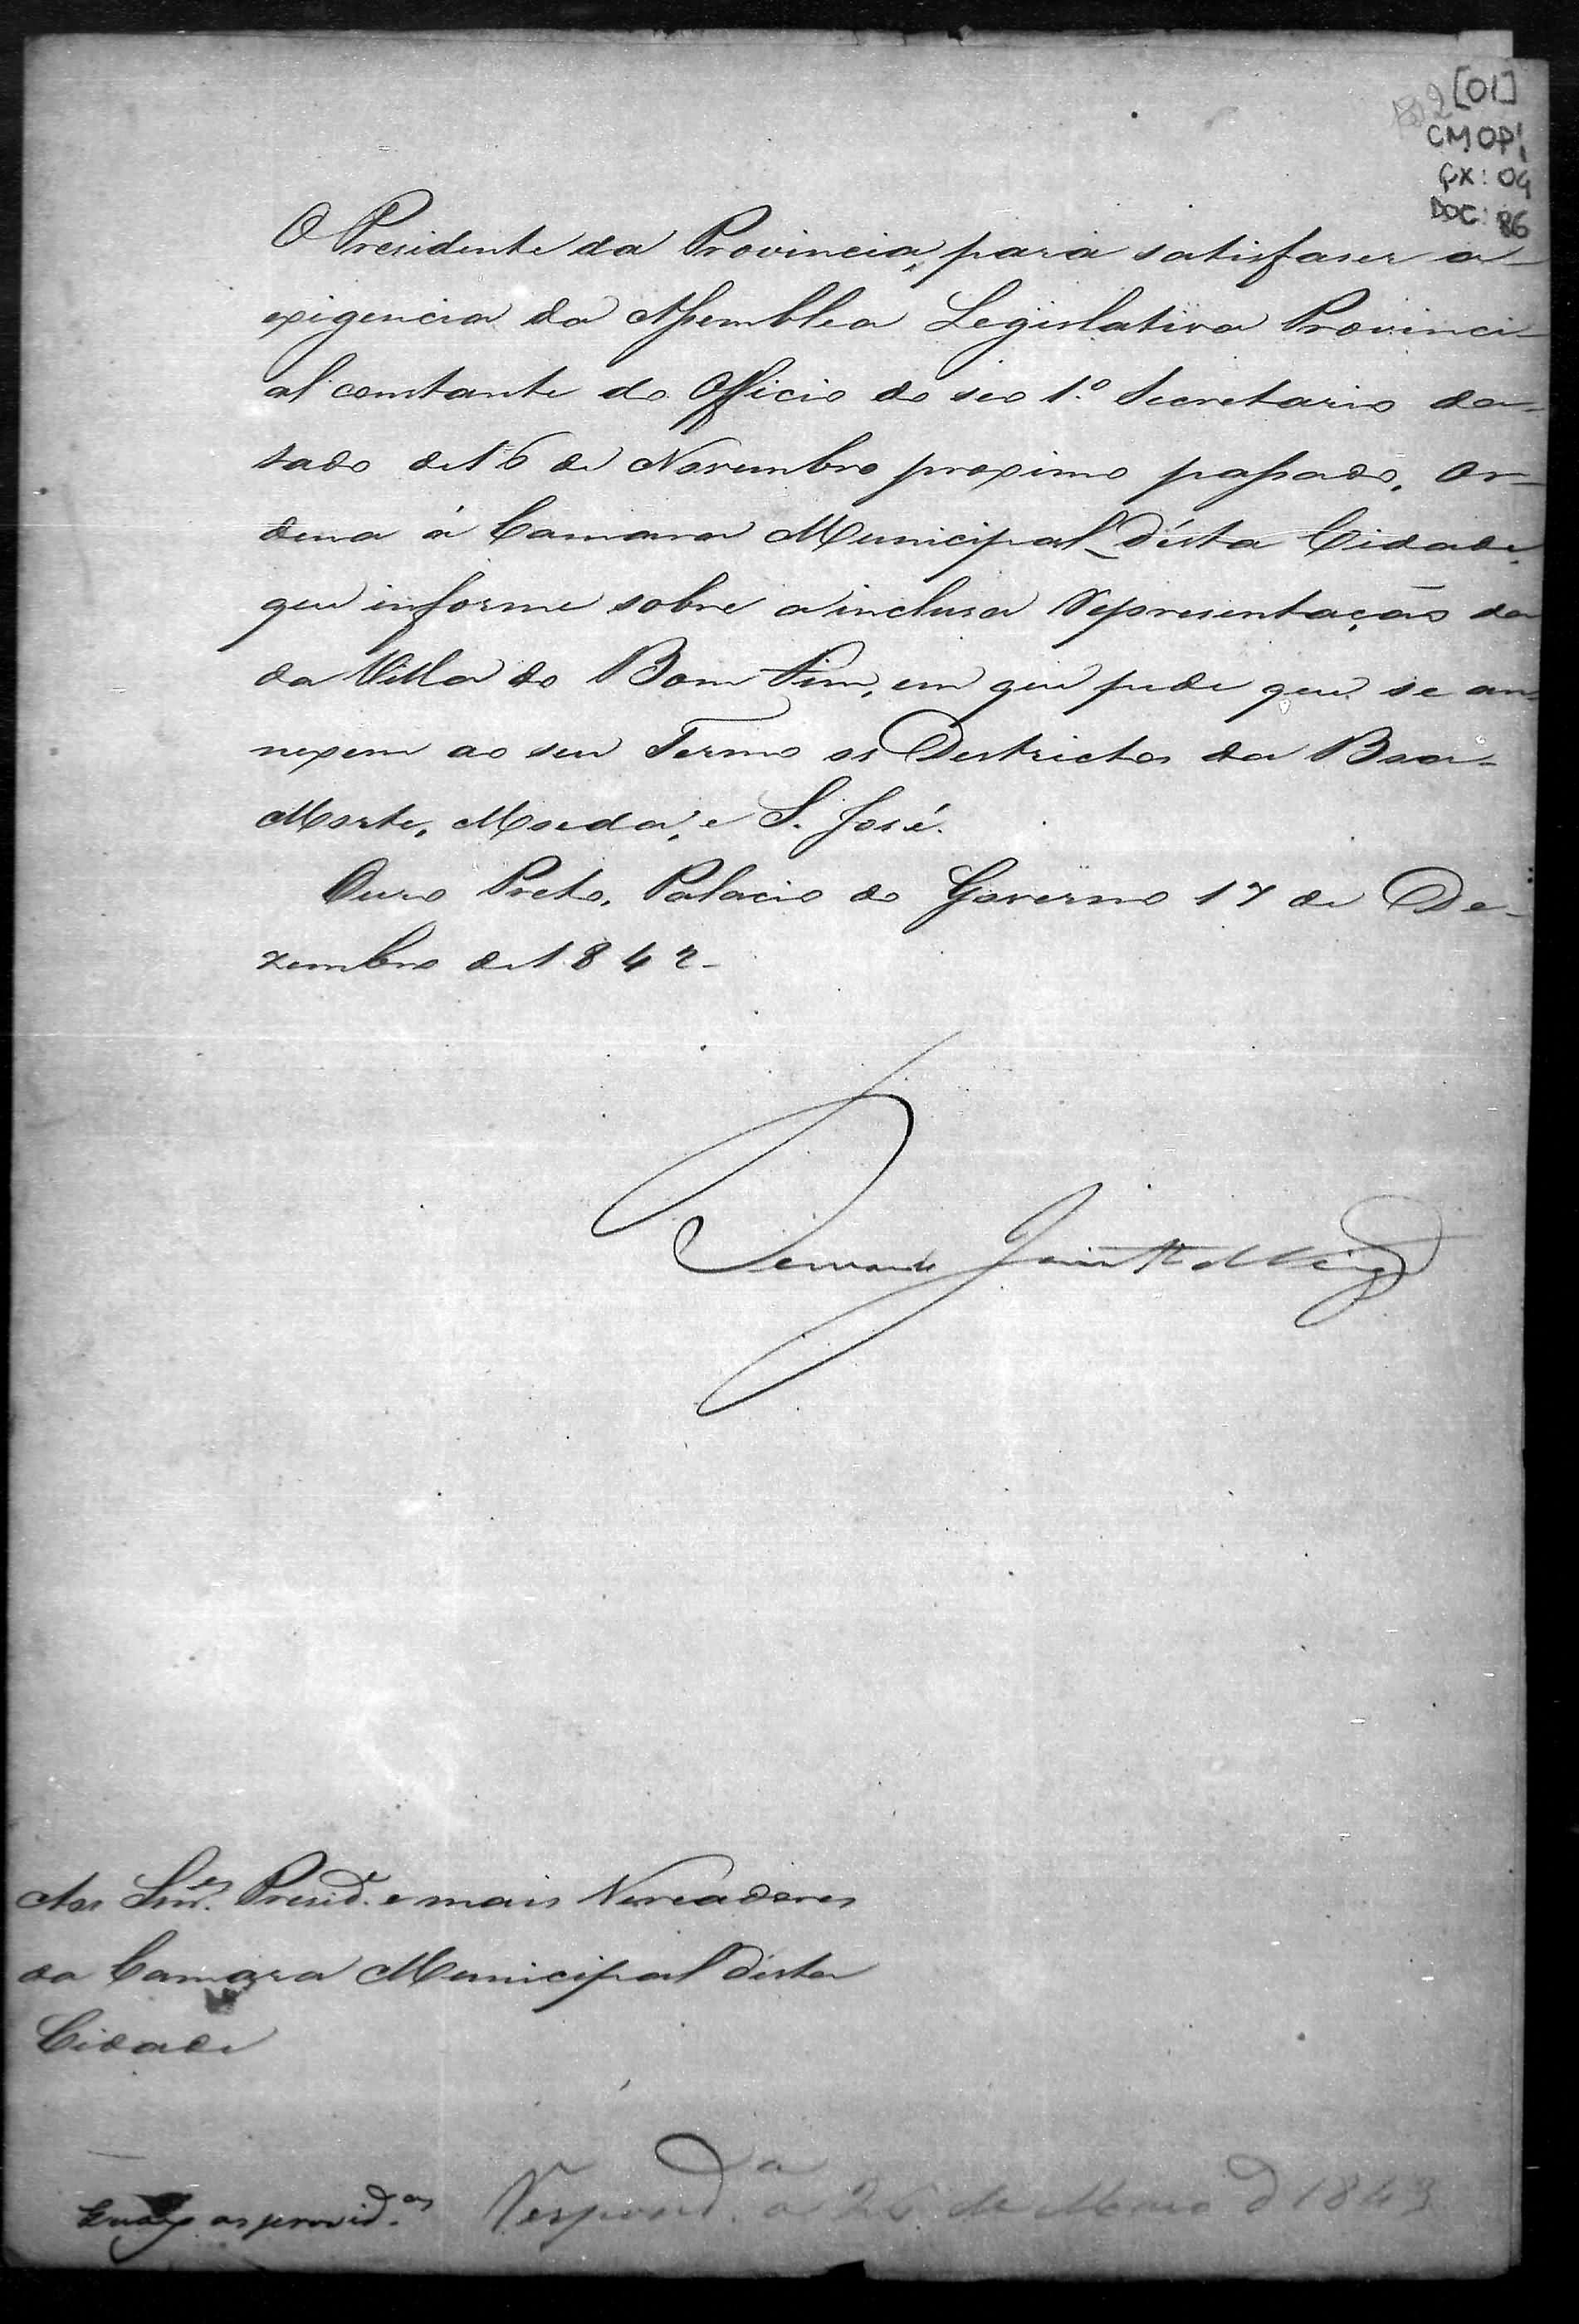 [01]
CMOP
CX: 04
DOC: 86
O Presidente da Provincia, para satisfaser a
exigencia da Assemblea Legislativa Provinci-
al constante do Officio do seo 1º Secretario da-
tado de 16 de Novembro proximo passado, Or-
dena á Camara Municipal d'ésta Cidade,
que informe sobre a inclusa Representação da
da Villa do Bom Fim, em que pede que se an-
nexem ao seu Termo os Destrictos da Boa-
Morte, Moeda, e S. José.
Ouro Preto, Palacio do Governo 17 de De-
zembro de 1842-
Bernardo Jacintho da Veiga
Aos Snr.es Presid.e e mais Vereadores
da Camara Municipal désta
Cidade
as provid.as
Respond.a a 26 de Maio d 1843